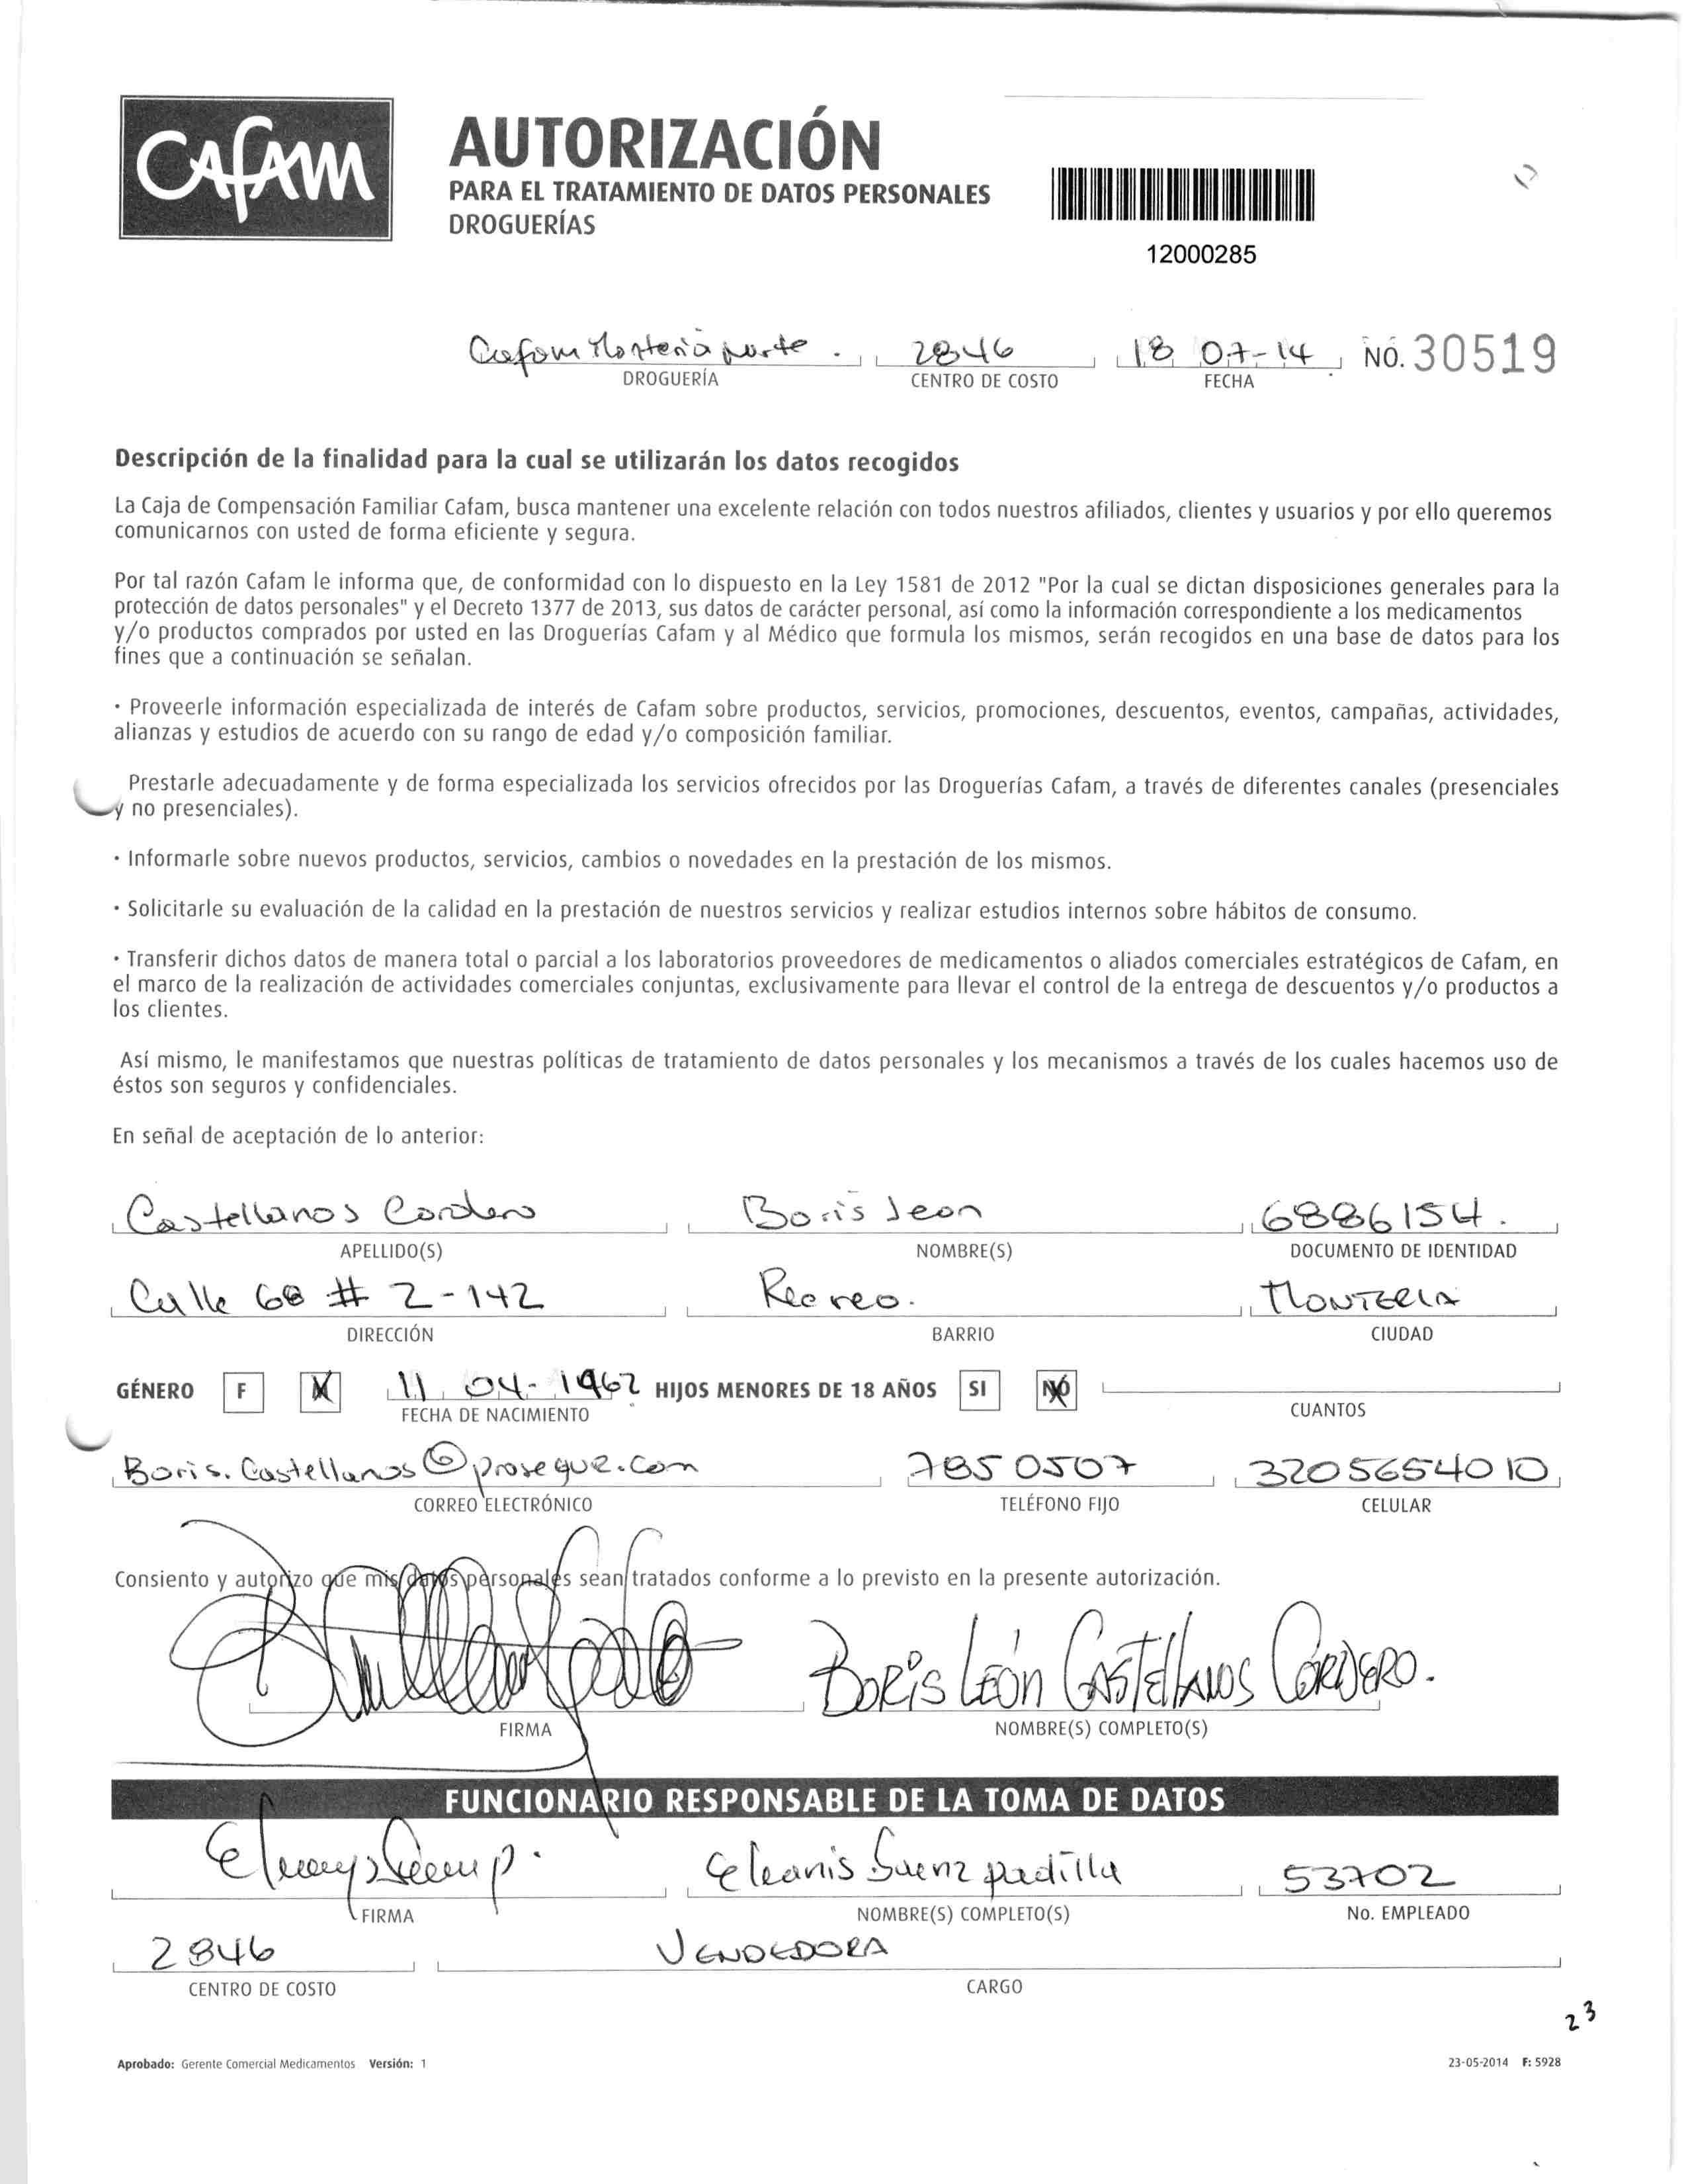 CAFAM
AUTORIZACIÓN
PARA EL TRATAMIENTO DE DATOS PERSONALES
DROGUERÍAS
12000285
Cafam Monteria norte . 2846 18 07-14 NO. 30519
DROGUERÍA CENTRO DE COSTO FECHA
Descripción de la finalidad para la cual se utilizarán los datos recogidos
La Caja de Compensación Familiar Cafam, busca mantener una excelente relación con todos nuestros afiliados, clientes y usuarios y por ello queremos
comunicarnos con usted de forma eficiente y segura.
Por tal razón Cafam le informa que, de conformidad con lo dispuesto en la Ley 1581 de 2012 "Por la cual se dictan disposiciones generales para la
protección de datos personales" y el Decreto 1377 de 2013, sus datos de carácter personal, así como la información correspondiente a los medicamentos
y/o productos comprados por usted en las Droguerías Cafam y al Médico que formula los mismos, serán recogidos en una base de datos para los
fines que a continuación se señalan.
· Proveerle información especializada de interés de Cafam sobre productos, servicios, promociones, descuentos, eventos, campañas, actividades,
alianzas y estudios de acuerdo con su rango de edad y/o composición familiar.
Prestarle adecuadamente y de forma especializada los servicios ofrecidos por las Droguerías Cafam, a través de diferentes canales (presenciales
y no presenciales).
· Informarle sobre nuevos productos, servicios, cambios o novedades en la prestación de los mismos.
· Solicitarle su evaluación de la calidad en la prestación de nuestros servicios y realizar estudios internos sobre hábitos de consumo.
· Transferir dichos datos de manera total o parcial a los laboratorios proveedores de medicamentos o aliados comerciales estratégicos de Cafam, en
el marco de la realización de actividades comerciales conjuntas, exclusivamente para llevar el control de la entrega de descuentos y/o productos a
los clientes.
Así mismo, le manifestamos que nuestras políticas de tratamiento de datos personales y los mecanismos a través de los cuales hacemos uso de
éstos son seguros y confidenciales.
En señal de aceptación de lo anterior:
Castellanos Cordero Boris Leon 6886154.
APELLIDO(S) NOMBRE(S) DOCUMENTO DE IDENTIDAD
Calle 68 # 2-142 Recreo. MONTERIA
DIRECCIÓN BARRIO CIUDAD
GÉNERO F M 11 04- 1962 HIJOS MENORES DE 18 AÑOS SI NO
FECHA DE NACIMIENTO CUANTOS
Boris.Castellanos@prosegur.com 7850507 3205654010
CORREO ELECTRÓNICO TELÉFONO FIJO CELULAR
Consiento y autorizo que mis datos personales sean tratados conforme a lo previsto en la presente autorización.
BORIS LEÓN CASTELLANOS CORDERO.
FIRMA NOMBRE(S) COMPLETO(S)
FUNCIONARIO RESPONSABLE DE LA TOMA DE DATOS
Eleanis Saenz padilla 53702
FIRMA NOMBRE(S) COMPLETO(S) No. EMPLEADO
2846 VENDEDORA
CENTRO DE COSTO CARGO
23
Aprobado: Gerente Comercial Medicamentos Versión: 1 23-05-2014 F: 5928